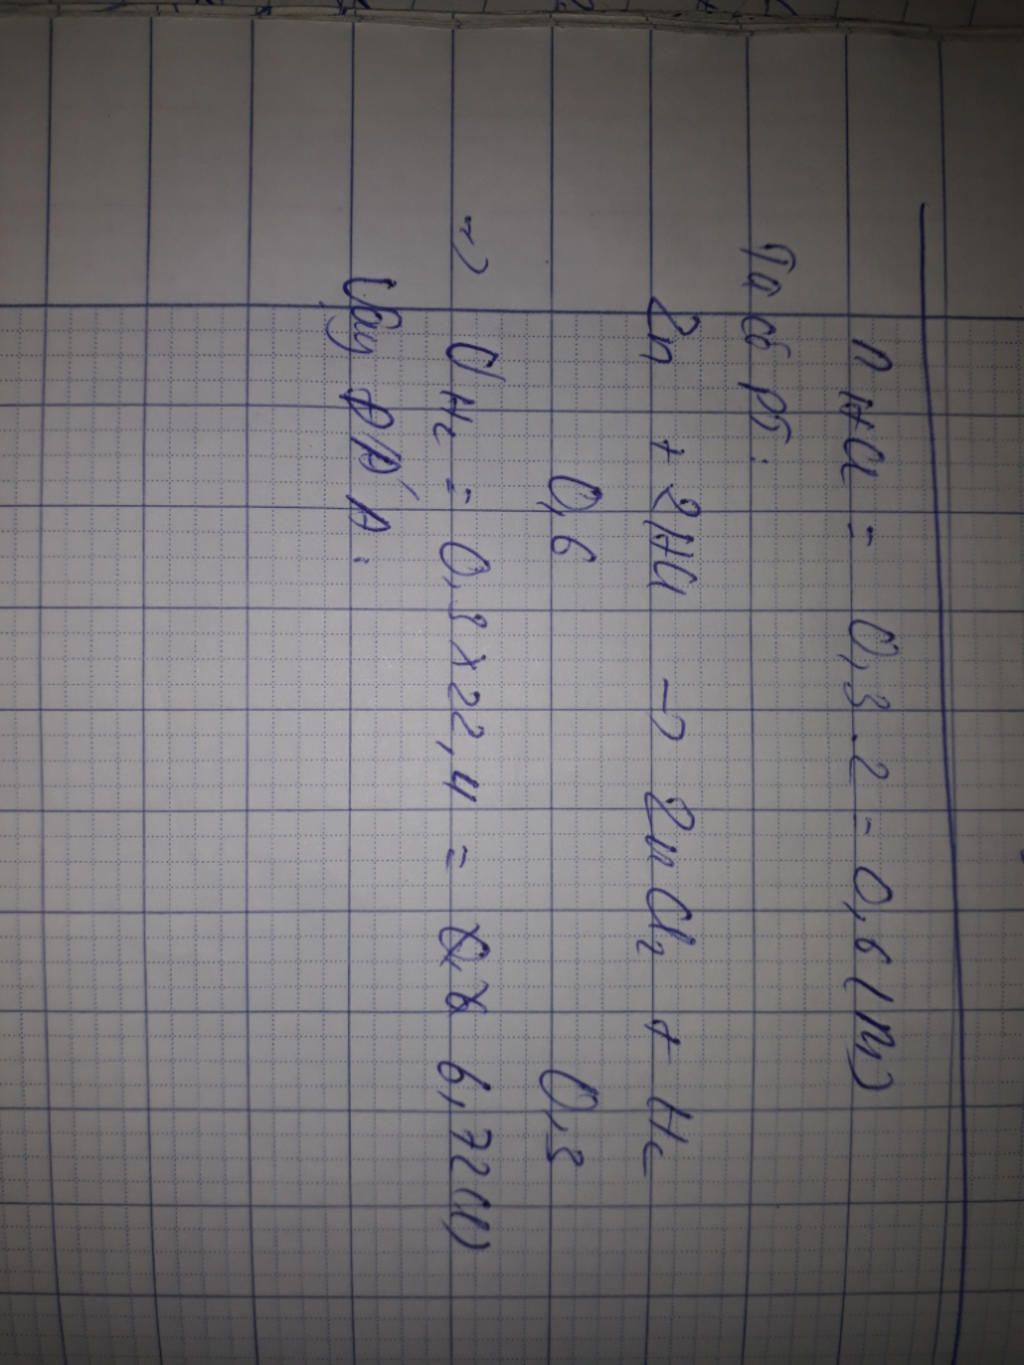 n HCl = 0,3.2 = 0,6 (m)
Ta có pt :
Zn + 2HCl -> ZnCl2 + H2
0,6 0,3
=> V H2 = 0,3 x 22,4 = 6,72 (l)
Vậy ĐÁ A.